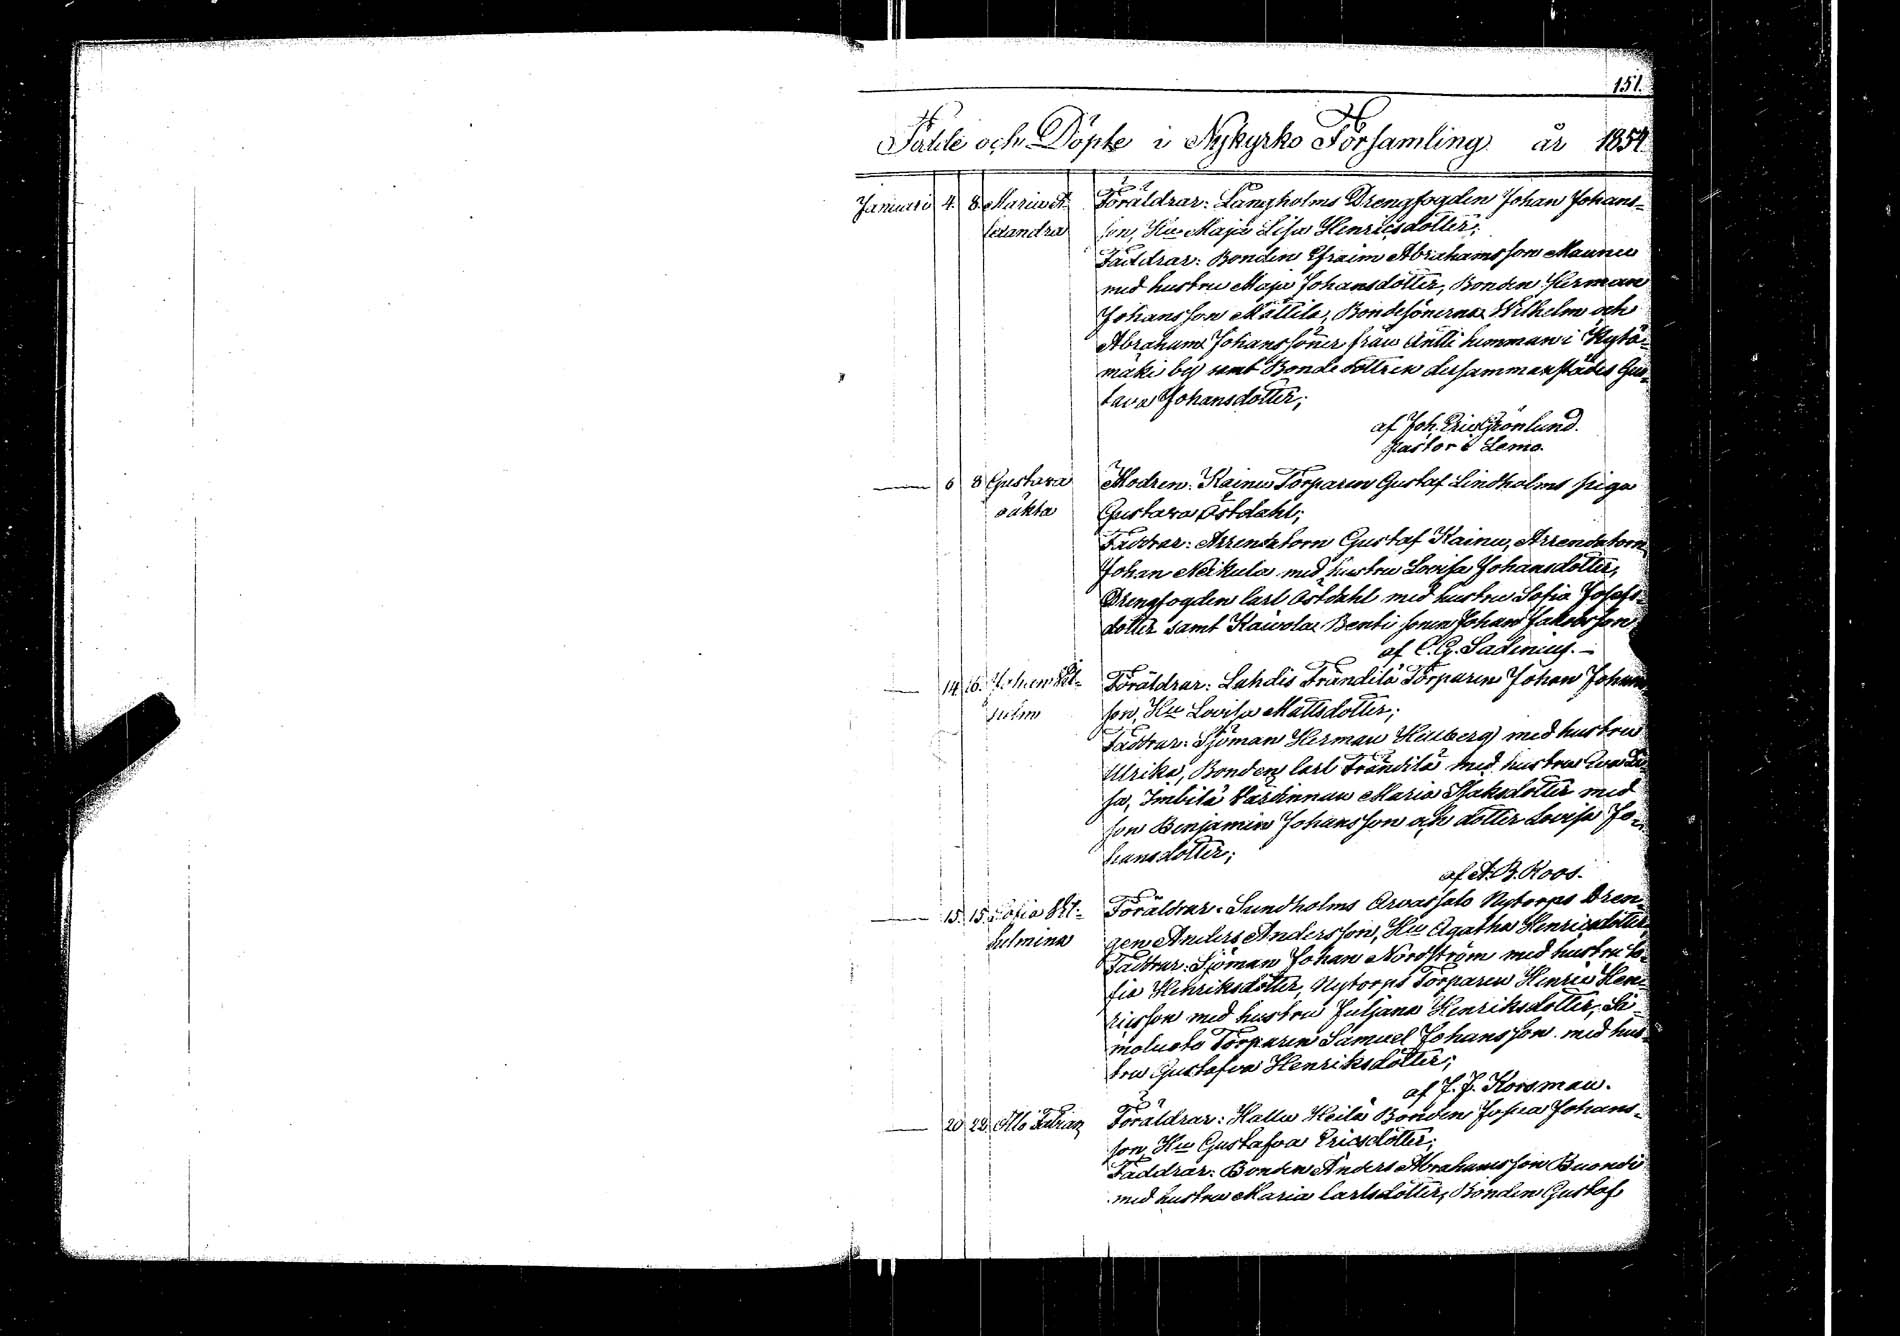 151.
Födde och Döpte i Nykyrko Församling år 1854.
Januari 4. 8. Maria A-
lexandra
Föräldrar: Långholms Drengfogden Johan Johans-
son, Hu Maja Lisa Henricsdotter;
Faddrar: Bonden Efraim Abrahamsson Maunu
med hustru Maja Johansdotter, Bonden Herman
Johansson Mattila, Bondesönerna Wilhelm och
Abraham Johanssöner från Antti hemman i
mäki by samt Bonde dottren dersammanstädes Gus-
tava Johansdotter;
af Joh. Eric Grönlund.
pastor i Lemo.
6 8 Gustava
oäkta
Modren: Kainu Torparen Gustaf Lindholms piga
Gustava Östdahl;
Faddrar: Arrendatorn Gustaf Kainu, Arrendatorn
Johan Neikula med hustru Lovisa Johansdotter,
Drengfogden Carl Östdahl med hustru Sofia Josefs-
dotter samt Kaivola Bentis sonen Johan Jakobsson
af C. G. Sadenius.-
14 16. Johan Vil-
helm
Föräldrar: Lahdis Frändilä Torparen Johan Johans-
son, Hu Lovisa Mattsdotter;
Faddrar: Sjöman Herman Heckberg med hustru
Ulrika, Bonden Carl Frändilä med hustru Eva Li-
sa, Imbilä Värdinnan Maria Isaksdotter med
son Benjamin Johansson och dotter Lovisa Jo-
hansdotter;
af A. B. Roos.
15. 15. Sofia Vil-
helmina
Föräldrar: Sundholms Arvassalo Nytorps Dren-
gen Anders Andersson, Hu Agatha Henricsdotter,
Faddrar: Sjöman Johan Nordström med hustru So-
fia Henriksdotter, Nytorps Torparen Henric Hen-
ricsson med hustru Juljana Henriksdotter,
Torparen Samuel Johansson med hus-
tru Gustafva Henriksdotter;
af J. J. Korsman.
20 22 Otto Fabian
Föräldrar: Hallu Heilä Bonden Josua Johans-
son, Hu Gustafva Ericsdotter;
Faddrar: Bonden Anders Abrahamsson Buondi
med hustru Maria Carlsdotter, Bonden Gustaf